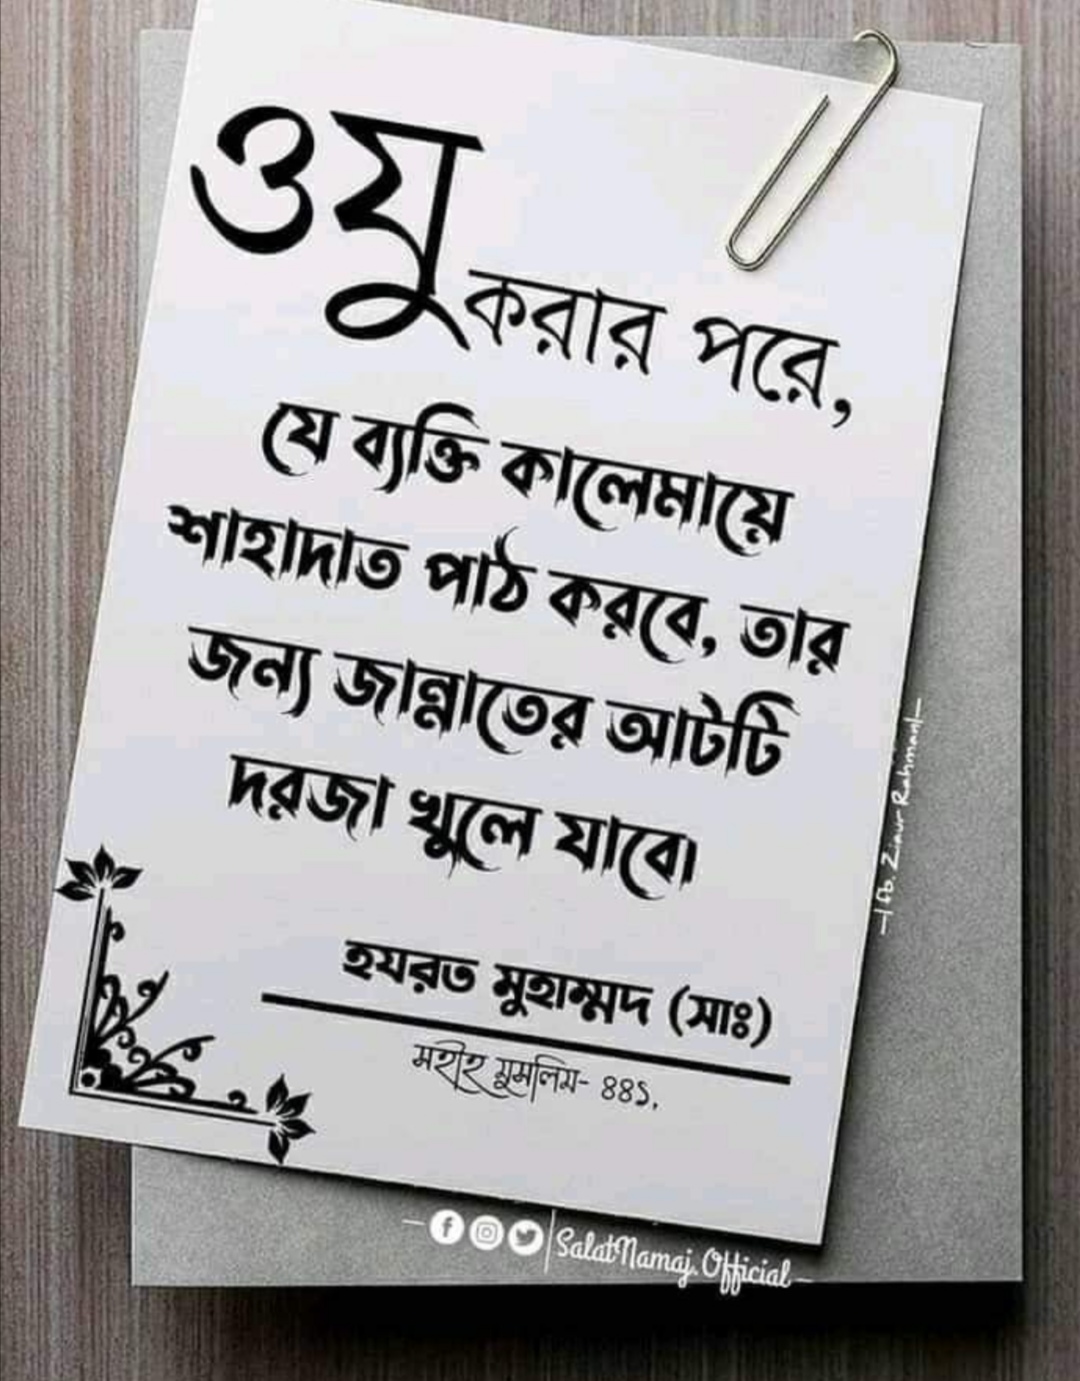 ওযু
করার পরে,
যে ব্যক্তি কালেমায়ে
শাহাদাত পাঠ করবে, তার
জন্য জান্নাতের আটটি
দরজা খুলে যাবে।
হযরত মুহাম্মদ (সাঃ)
সহীহ মুসলিম- ৪৪১,
Fb. Ziaur Rahman
SalatNamaj.Official